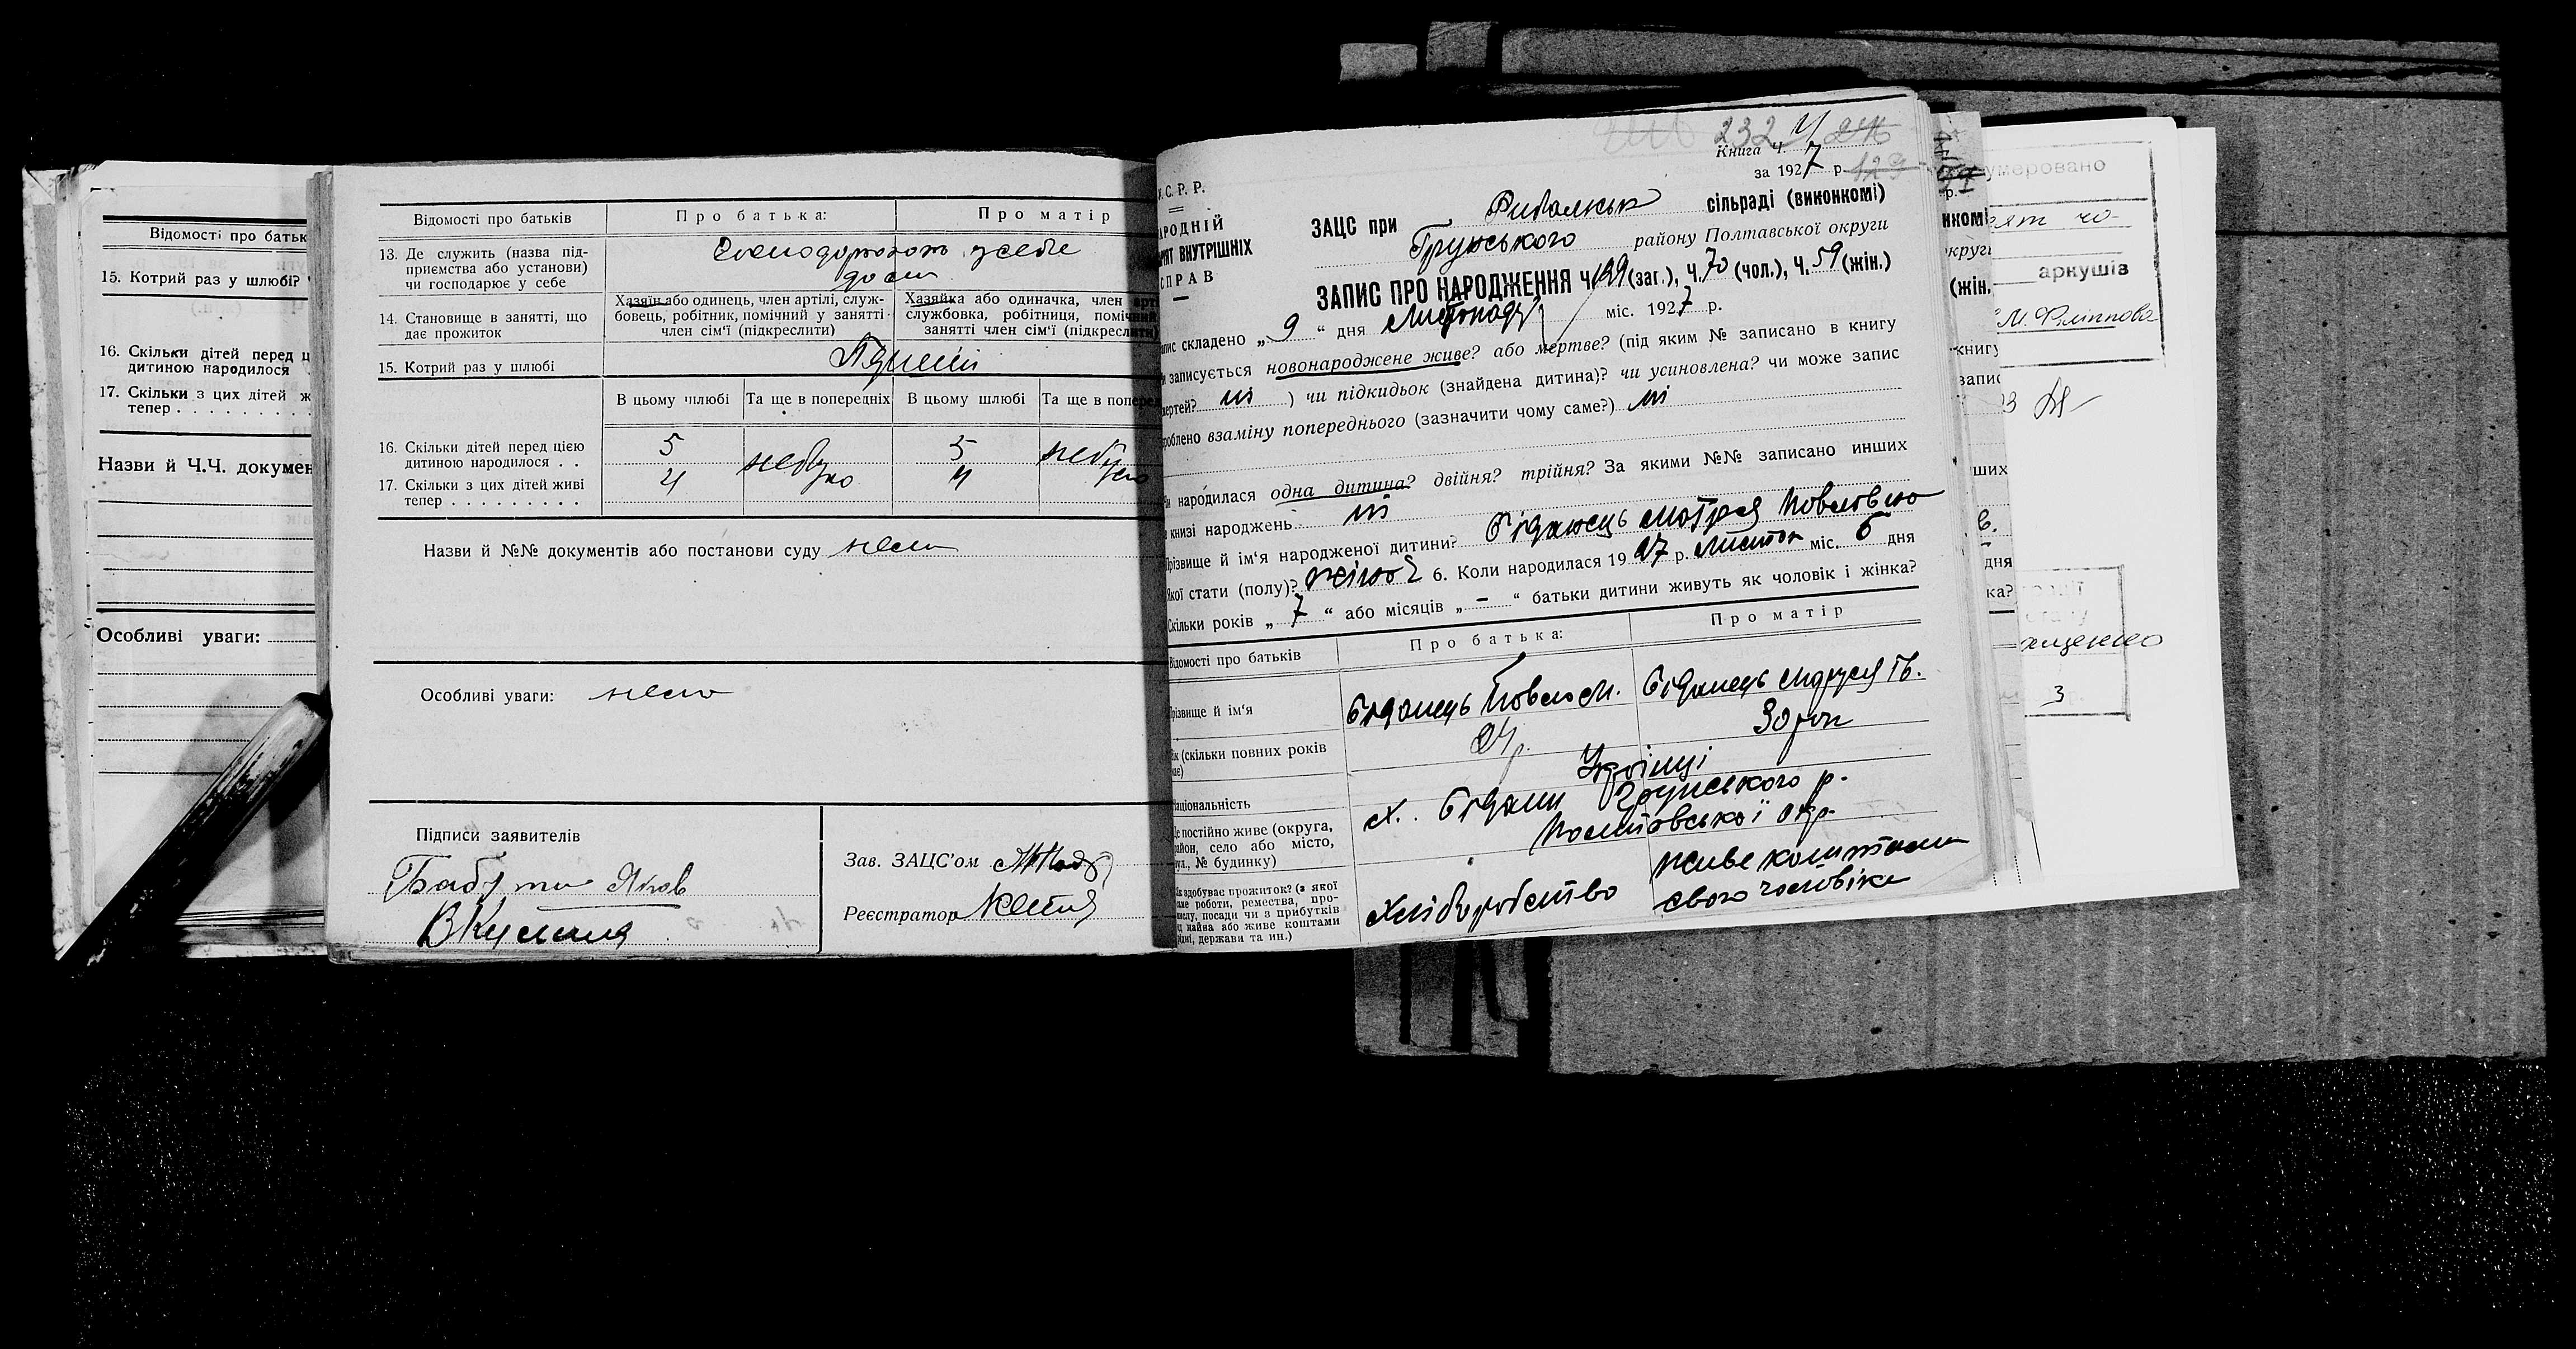 Відомості про батьк
15. Котрий раз у шлюбі?
16. Скільки дітей перед ц
дитиною народилося
17. Скільки з цих дітей ж
тепер . . . . . . . . .
Назви й Ч.Ч. докумен
Особливі уваги:
Відомості про батьків
Про батька:
Про матір
13. Де служить (назва під-
приємства або установи)
чи господарює у себе
у себе
дома
14. Становище в занятті, що
дає прожиток
Хазяїн або одинець, член артілі, служ-
бовець, робітник, помічний у занятті
член сім'ї (підкреслити)
Хазяйка або одиначка, член арті
службовка, робітниця, помічний
занятті член сім'ї (підкреслити)
15. Котрий раз у шлюбі
Перший
В цьому шлюбі
Та ще в попередніх
В цьому шлюбі
Та ще в поперед
16. Скільки дітей перед цією
дитиною народилося . .
5
небуло
5
небуло
17. Скільки з цих дітей живі
тепер . . . . . . . . .
4
4
Назви й №№ документів або постанови суду нема
Особливі уваги: нема
Підписи заявителів
Яков
Зав. ЗАЦС'ом
Реєстратор
232
Книга Ч. 4
за 1927 р. 129
У.С.Р.Р.
АРОДНІЙ
АРІЯТ ВНУТРІШНІХ
СПРАВ
ЗАЦС при Рибальськ сільраді (виконкомі)
Грунського району Полтавської округи
ЗАПИС ПРО НАРОДЖЕННЯ Ч. 129 (заг.), Ч. 70 (чол.), Ч. 59 (жін.)
апис складено „9“ дня Листопаду міс. 1927 р.
и записується новонароджене живе? або мертве? (під яким № записано в книгу
мертей? ні ) чи підкидьок (знайдена дитина)? чи усиновлена? чи може запис
роблено взаміну попереднього (зазначити чому саме?) ні
и народилася одна дитина? двійня? трійня? За якими №№ записано инших
книзі народжень ні
Прізвище й ім'я народженої дитини? Біданець Мотря Павловна
Якої стати (полу)? жіноч 6. Коли народилася 1927 р. Листоп міс. 6 дня
Скільки років „7“ або місяців „-“ батьки дитини живуть як чоловік і жінка?
Відомості про батьків
Про батька:
Про матір
Прізвище й ім'я
Біданець Павло М.
Біданець Маруся Ів.
Вік (скільки повних років
має)
30 рок
Національність
Українці
Де постійно живе (округа,
район, село або місто,
вул., № будинку)
х. Бідани Грунського р.
Полтавської окр.
Як здобуває прожиток? (з якої
саме роботи, ремества, про-
мислу, посади чи з прибутків
від майна або живе коштами
рідні, держави та ин.)
Хліборобство
живе коштами
свого чоловіка
нкомі
круги
(жін.
книгу
запис
ших
дня
ка?
умеровано
аркушів
3